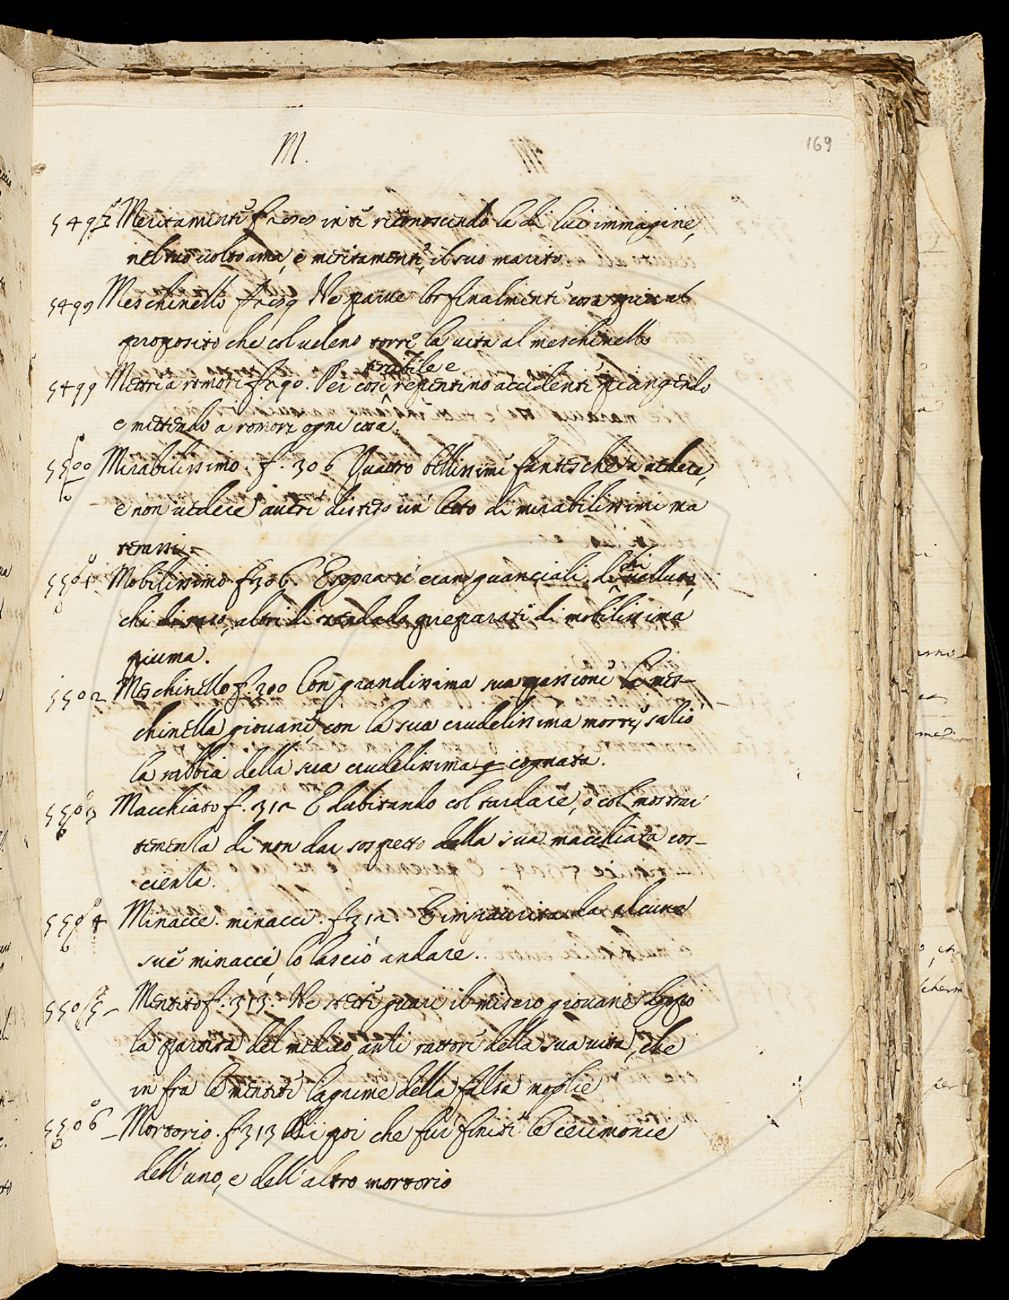 M.
169
5497 Meritamente f. 289 in te riconoscendo la di lui immagine,
nel tuo volto ama, e meritamente, il suo marito.
5499 Meschinello f. 289 Ne parve lor finalmente cosa più al
proposito che col veleno torre la vita al meschinello
terribile e
5499 Mettere a romore f. 290. Per così repentino accidente piangendo
e mettendo a romore ogni cosa.
5500 Mirabilissimo. f. 306 Quattro bellissime fantesche a vedere,
e non vedere avere disteso un letto di mirabilissime ma
terassi.
5501 Mobilissimo f. 306. E sopra vi eran guanciali, di
chi di raso, altri di zendada preparati di mobilissima
piuma.
5502 Meschinello f. 300 Con grandissima sua passione la mes-
chinella giovane con la sua crudelissima morte saziò
la rabbia della sua crudelissima cognata.
5503 Macchiato f. 312 E dubitando col tardare, o col mostrar
temenza di non dar sospetto della sua macchiata cos-
cienza.
5504 Minacce. minacci. f. 312 E impaurita da alcune
sue minacce, lo lasciò andare.
5505 Mentito f. 313. Ne stette guari il misero giovane dopo
la partita del medico anzi rattore della sua vita, che
in fra le mentite lagrime della falsa moglie
5506 Mortorio. f. 313 Di poi che fur finite le cerimonie
dell'uno, e dell'altro mortorio